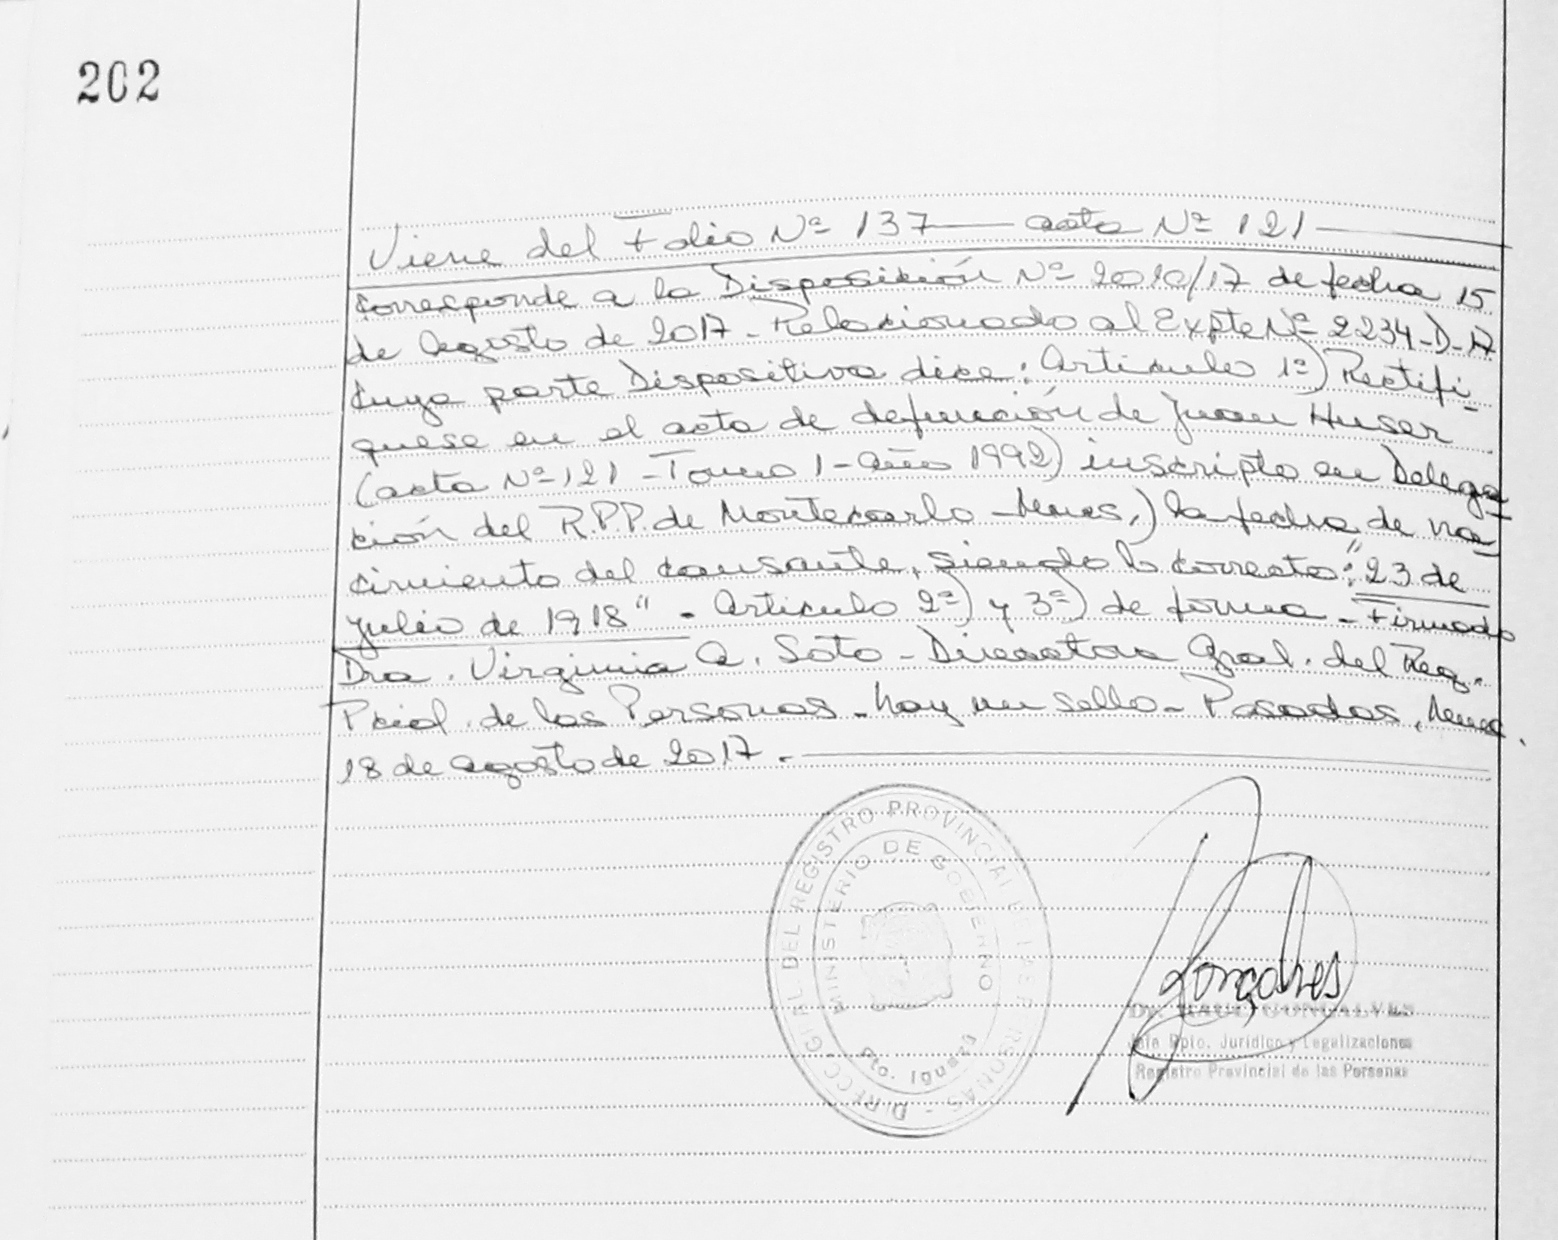 202
Viene del Folio Nº 137 — acta Nº 121 —
Corresponde a la Disposición Nº 2010/17 de fecha 15
de Agosto de 2017 - Relacionado al Expte Nº 2234-D-17
Cuya parte Dispositiva dice: Artículo 1º) Rectifi-
quese en el acta de defunción de Juan Huser
(acta Nº 121 - Tomo 1 - año 1992) inscripto en Delega-
ción del R.P.P. de Montecarlo - Mnes,) la fecha de na-
cimiento del causante, siendo lo correcto: "23 de
julio de 1918" - Artículo 2º) y 3º) de forma - Firmado
Dra. Virginia A. Soto - Directora Gral. del Reg.
Pcial. de las Personas - hay un sello - Posadas, Mnes.
18 de agosto de 2017. —
DIRECC. GRAL. DEL REGISTRO PROVINCIAL DE LAS PERSONAS -
MINISTERIO DE GOBIERNO
Pto. Iguazú
Gonçalves
Dr. RAUL GONCALVES
Jefe Dpto. Jurídico y Legalizaciones
Registro Provincial de las Personas